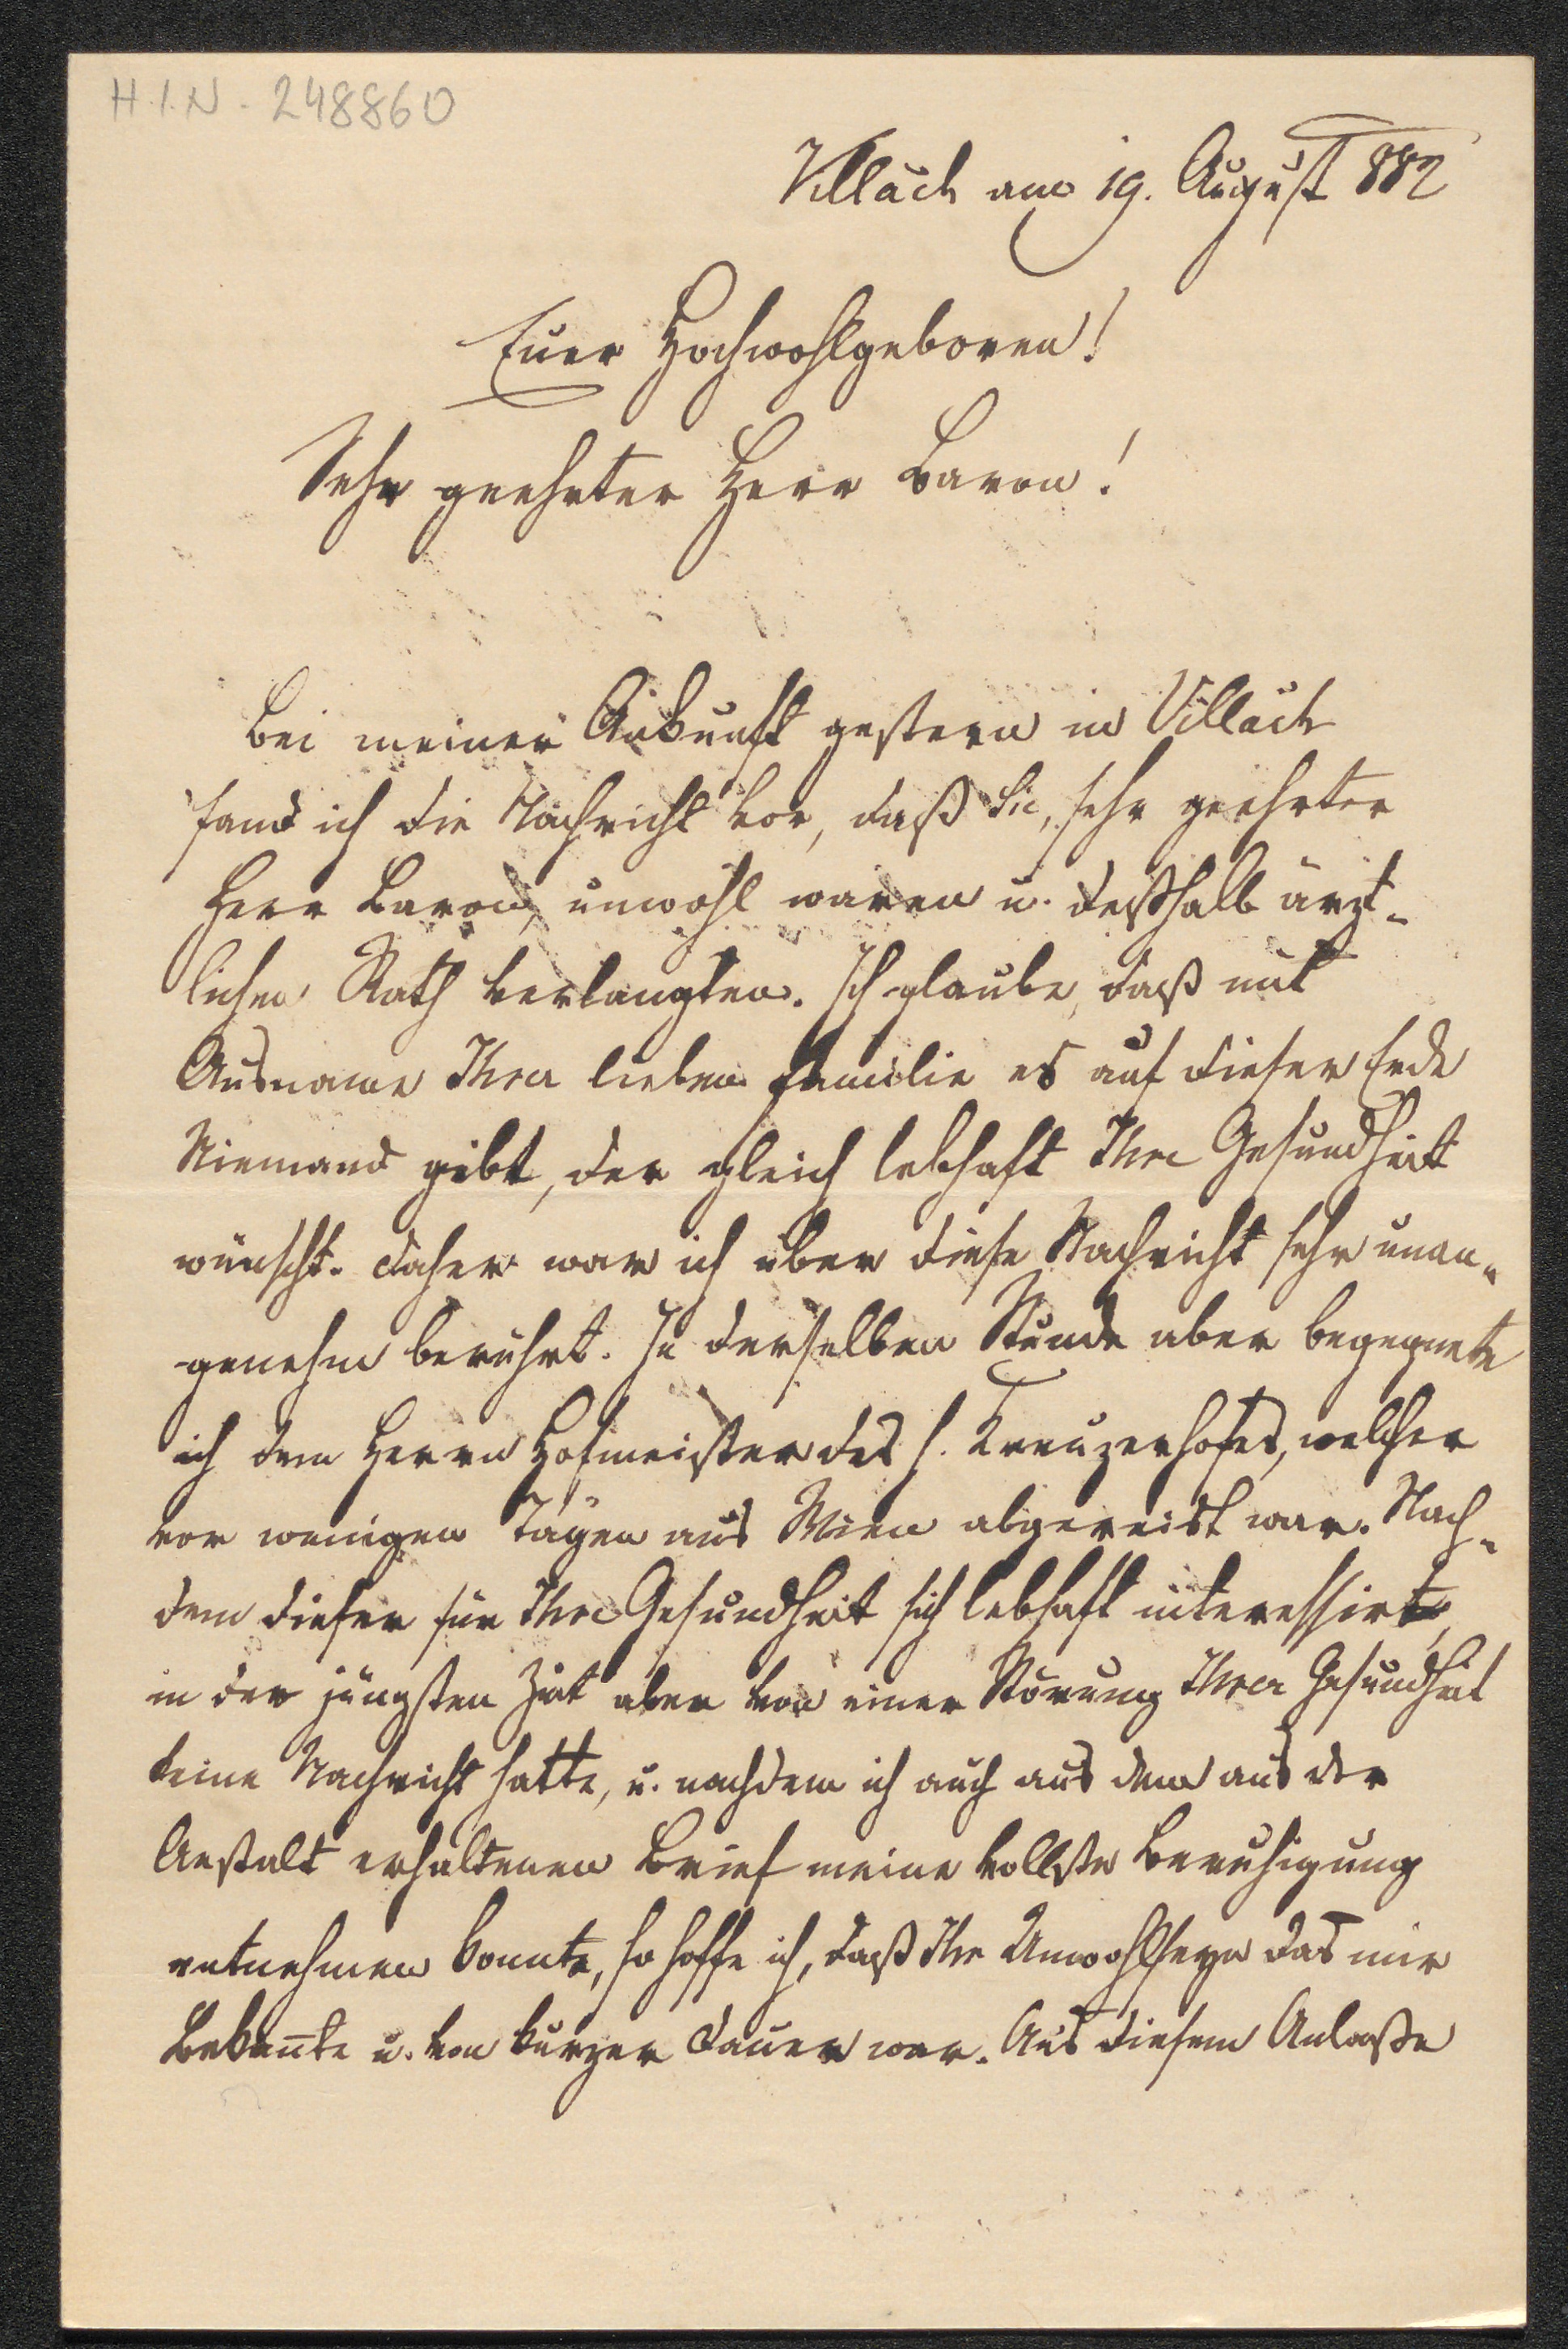 H.I.N. 248860
Villach am 19. August 882
Euer Hochwohlgeboren!
Sehr geehrter Herr Baron!
Bei meiner Ankunft gestern in Villach
fand ich die Nachricht vor, daß Sie, sehr geehrter
Herr Baron, unwohl waren u. deßhalb ärzt-
lichen Rath verlangten. Ich glaube, daß mit
Ausname Ihrer lieben Familie es auf dieser Erde
Niemand gibt, der gleich lebhaft Ihre Gesundheit
wünscht. Daher war ich über diese Nachricht sehr unan-
genehm berührt. In derselben Stunde aber begegnete
ich dem Herrn Hofmeister des h. Kreuzerhofes, welcher
vor wenigen Tagen aus Wien abgereist war. Nach-
dem dieser für Ihre Gesundheit sich lebhaft interessirt,
in der jüngsten Zeit aber von einer Störung Ihrer Gesundheit
keine Nachricht hatte, u. nachdem ich auch aus dem aus der
Anstalt erhaltenen Brief meine vollste Beruhigung
entnehmen konnte, so hoffe ich, daß Ihr Unwohlseyn das mir
Bekan̄te u. von kurzer Dauer war. Aus diesem Anlaße